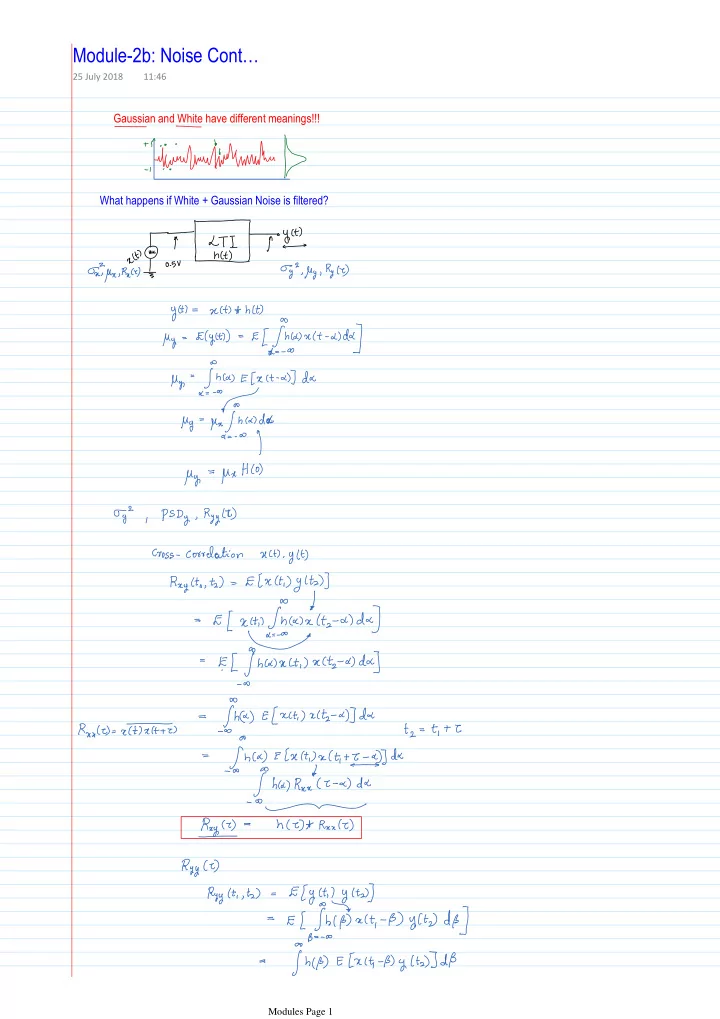 Module-2b: Noise Cont…
25 July 2018 11:46
Gaussian and White have different meanings!!!
+1
-1
What happens if White + Gaussian Noise is filtered?
x(t)
0.5V
LTI
h(t)
y(t)
σx², μx, Rx(τ)
σy², μy, Ry(τ)
y(t) = x(t) * h(t)
μy = E(y(t)) = E[ ∫_{α=-∞}^{∞} h(α) x(t-α) dα ]
μy = ∫_{α=-∞}^{∞} h(α) E[x(t-α)] dα
μy = μx ∫_{α=-∞}^{∞} h(α) dα
μy = μx H(0)
σy² , PSDy , Ryy(τ)
Cross-Correlation x(t), y(t)
Rxy(t₁, t₂) = E[x(t₁) y(t₂)]
= E[ x(t₁) ∫_{α=-∞}^{∞} h(α) x(t₂-α) dα ]
= E[ ∫_{-∞}^{∞} h(α) x(t₁) x(t₂-α) dα ]
= ∫_{-∞}^{∞} h(α) E[x(t₁) x(t₂-α)] dα
Rxx(τ) = x(t)x(t+τ)
t₂ = t₁ + τ
= ∫_{-∞}^{∞} h(α) E[x(t₁) x(t₁+τ-α)] dα
∫_{-∞}^{∞} h(α) Rxx(τ-α) dα
Rxy(τ) = h(τ) * Rxx(τ)
Ryy(τ)
Ryy(t₁, t₂) = E[y(t₁) y(t₂)]
= E[ ∫_{β=-∞}^{∞} h(β) x(t₁-β) y(t₂) dβ ]
= ∫^{∞} h(β) E[x(t₁-β) y(t₂)] dβ
Modules Page 1